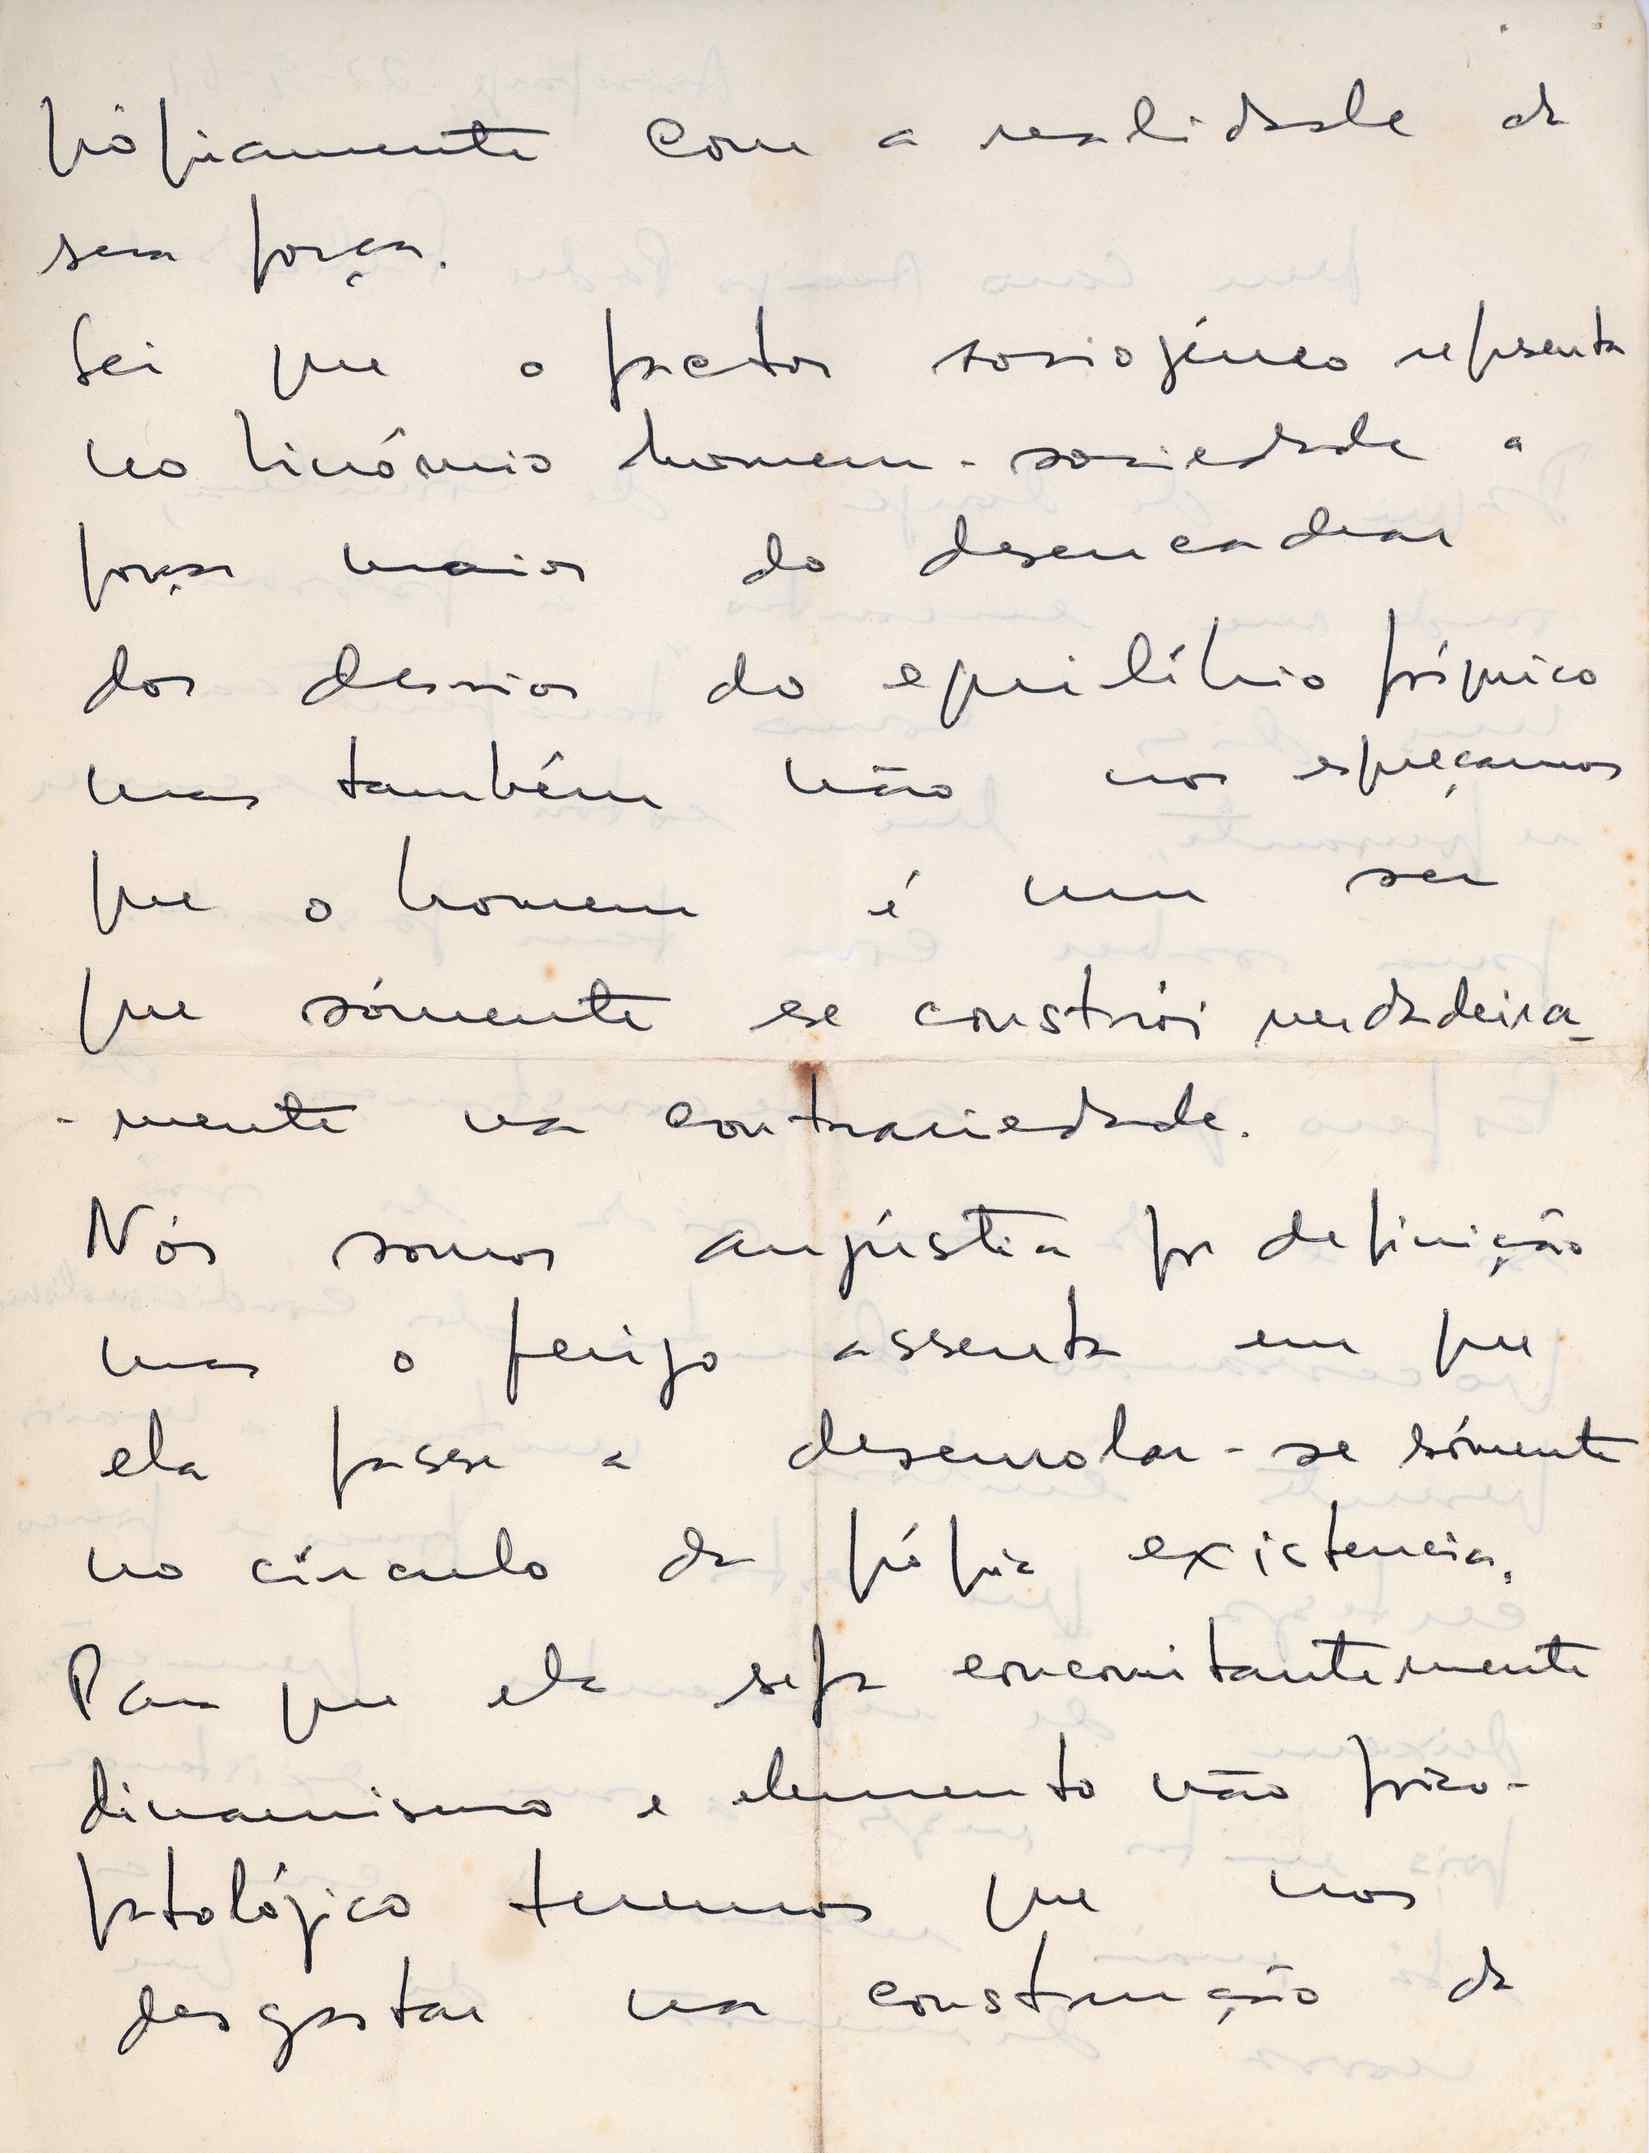 própriamente com a realidade da
sua força.
Sei que o factor sociogéneo representa
no binómio homem-sociedade a
força maior do desencadear
dos desvios do equilíbrio psíquico
mas também não nos esqueçamos
que o homem é um ser
que sómente se constrói verdadeira-
-mente na contrariedade.
Nós somos angústia por definição
mas o perigo assenta em que
ela passe a desenrolar-se sómente
no círculo da própria existencia.
Para que ela seja concomitantemente
dinamismo e elemento não psico-
patológico teremos que nos
desgastar na construção da